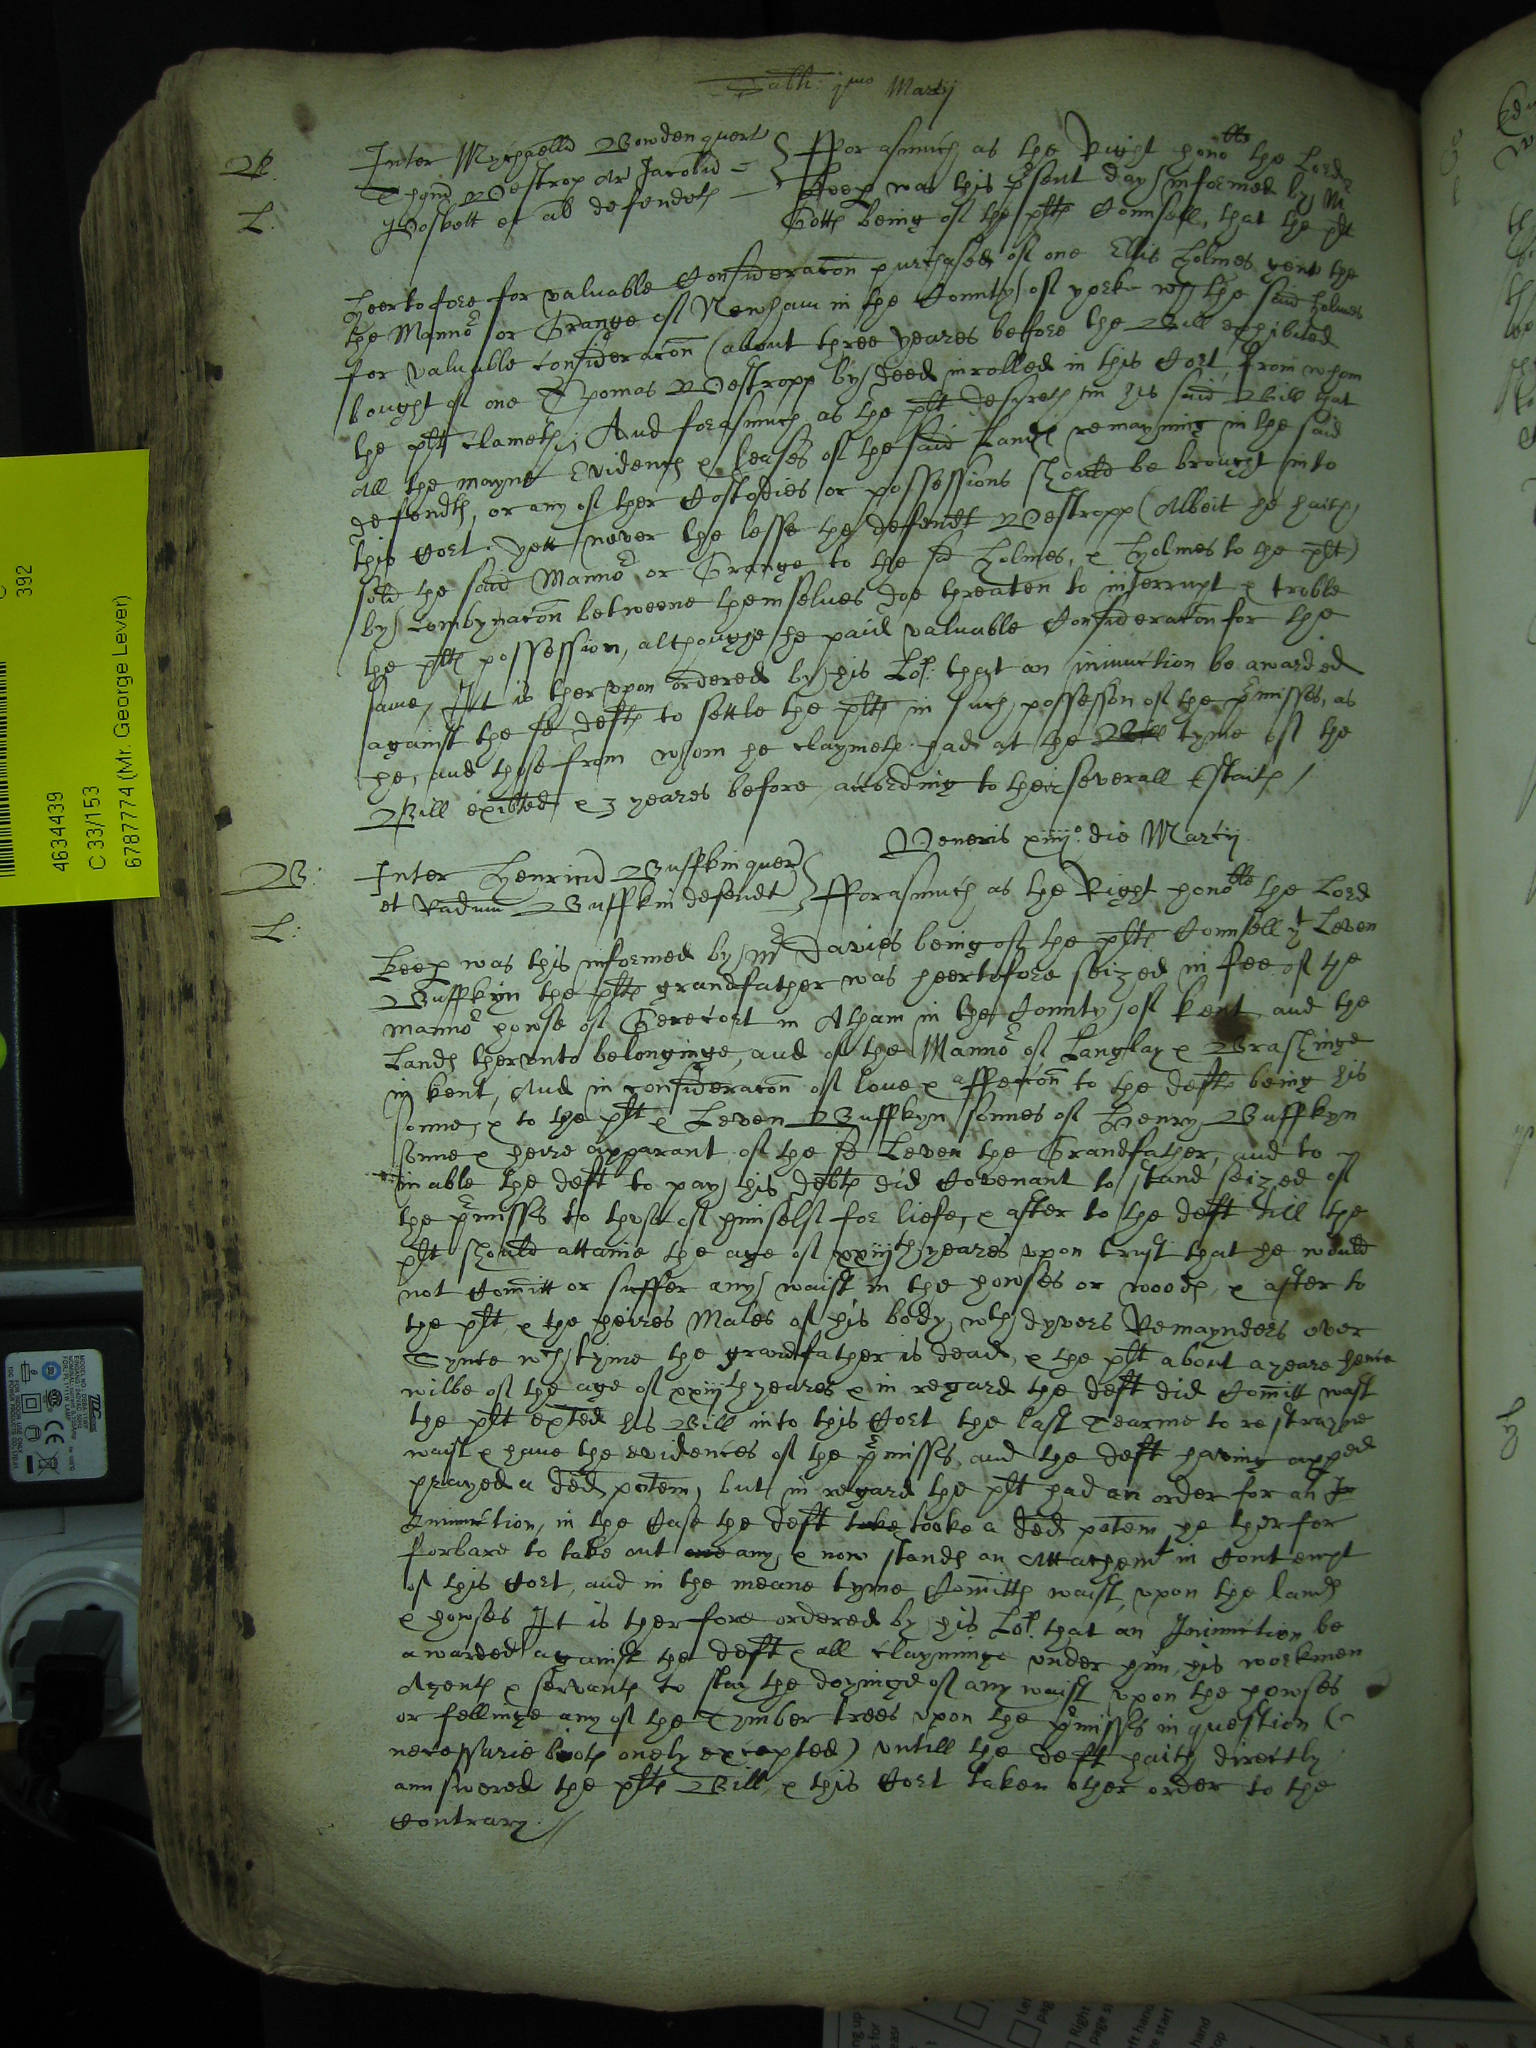 Sabti: jmo Martij
B
L.
Inter Mychaelld Bowden quert
Thomd Westrop Ar Jacobid =
Goskett et ab defendeth
Fforasmuch as the Right honoble the Lord
Keep was this psent day informed by Mr
being of the plts Counsell, that the plt
heertofore for valuable Consideracon purchased of one Ellis Holmes gent the
the Mannor or Grange of Newham in the County of York wch the said Holmes
for valuable consideracon (about three yeares before the Bill exhibited
bought of one Thomas Westropp by deed inrolled in this Cort, from whom
the plt clameth; And forasmuch as the plt desyreth in his said Bill that
All the mayne Evidences & leases of the said Lands remayning in the said
defendts, or any of ther Costodies or possessions should be brought into
this Cort. yett never the lesse the defendt Westropp (Albeit he haith
sold the said Mannor or Grange to the sd Holmes, & Holmes to the plt)
by combynacon betweene themselves doe threaten to interrupt & troble
the plts possession, althoughe he paid valuable Consideracon for the
same, It is therupon ordered by his Lop: that an iniunction be awarded
against the sd defts to settle the plts in such possesson of the pmisses, as
he, and those from whom he claymeth had at the Bill tyme of the
Bill exibted & 3 yeares before according to their severall Estaits /
Veneris xiiijo die Martij
B:
L:
Inter Henricu Buffkin quer
et Radum Buffkin defendt
Fforasmuch as the Right honoble the Lord
Keep was this informed by Mr Davies being of the plts Counsell yt Leven
Buffkyn the plts grandfather was heertofore seized in fee of the
mannor howse of Gerecort in Atham in the County of Kent and the
Lands therunto belonginge, and of the Mannor of Langlay & Brashinge
in Kent, And in consideracon of love & affeccon to the defts being his
sonne, & to the plt & Leven Buffkyn sonnes of Henry Buffkyn
sonne & heire apparant of the sd Leven the Grandfather, and to
inable the deft to pay his debts did Covenant to stand seized of
the pmisses to thuse of himself for liefe, & after to the deft till the
plt should attaine the age of xxiiijth yeares upon trust that he would
not Comitt or suffer any waist in the howses or woods, & after to
the plt & the heires Males of his body, wth dyvers Remaynders over
Synce wch tyme the grandfather is dead, & the plt about a yeare hence
wilbe of the age of xxiiijth yeares & in regard the deft did Comitt wast
the plt exted his Bill into this Cort the last Tearme to restrayne
waist & have the evidences of the pmisses, and the deft having apped
prayed a ded potem, but in regard the plt had an order for an In
Iniunction, in the Case the deft take tooke a ded potem he therfor
forbare to take out one any, & now stands an Attachemt in Contempt
of this Cort, and in the meane tyme Comitts waist upon the lands
& howses It is therfore ordered by his Lop. that an Iniunction be
awarded against the deft & all clayminge under him, his workmen
Agents & servants to stay the doyinge of any waist upon the howses
or fellinge any of the Tymber trees upon the pmisses in question (
necessarie boots onely excepted) untill the deft haith directly
annswered the plts Bill, & this Cort taken other order to the
Contrary. //
392
4634439
C 33/153
6787774 (Mr. George Lever)